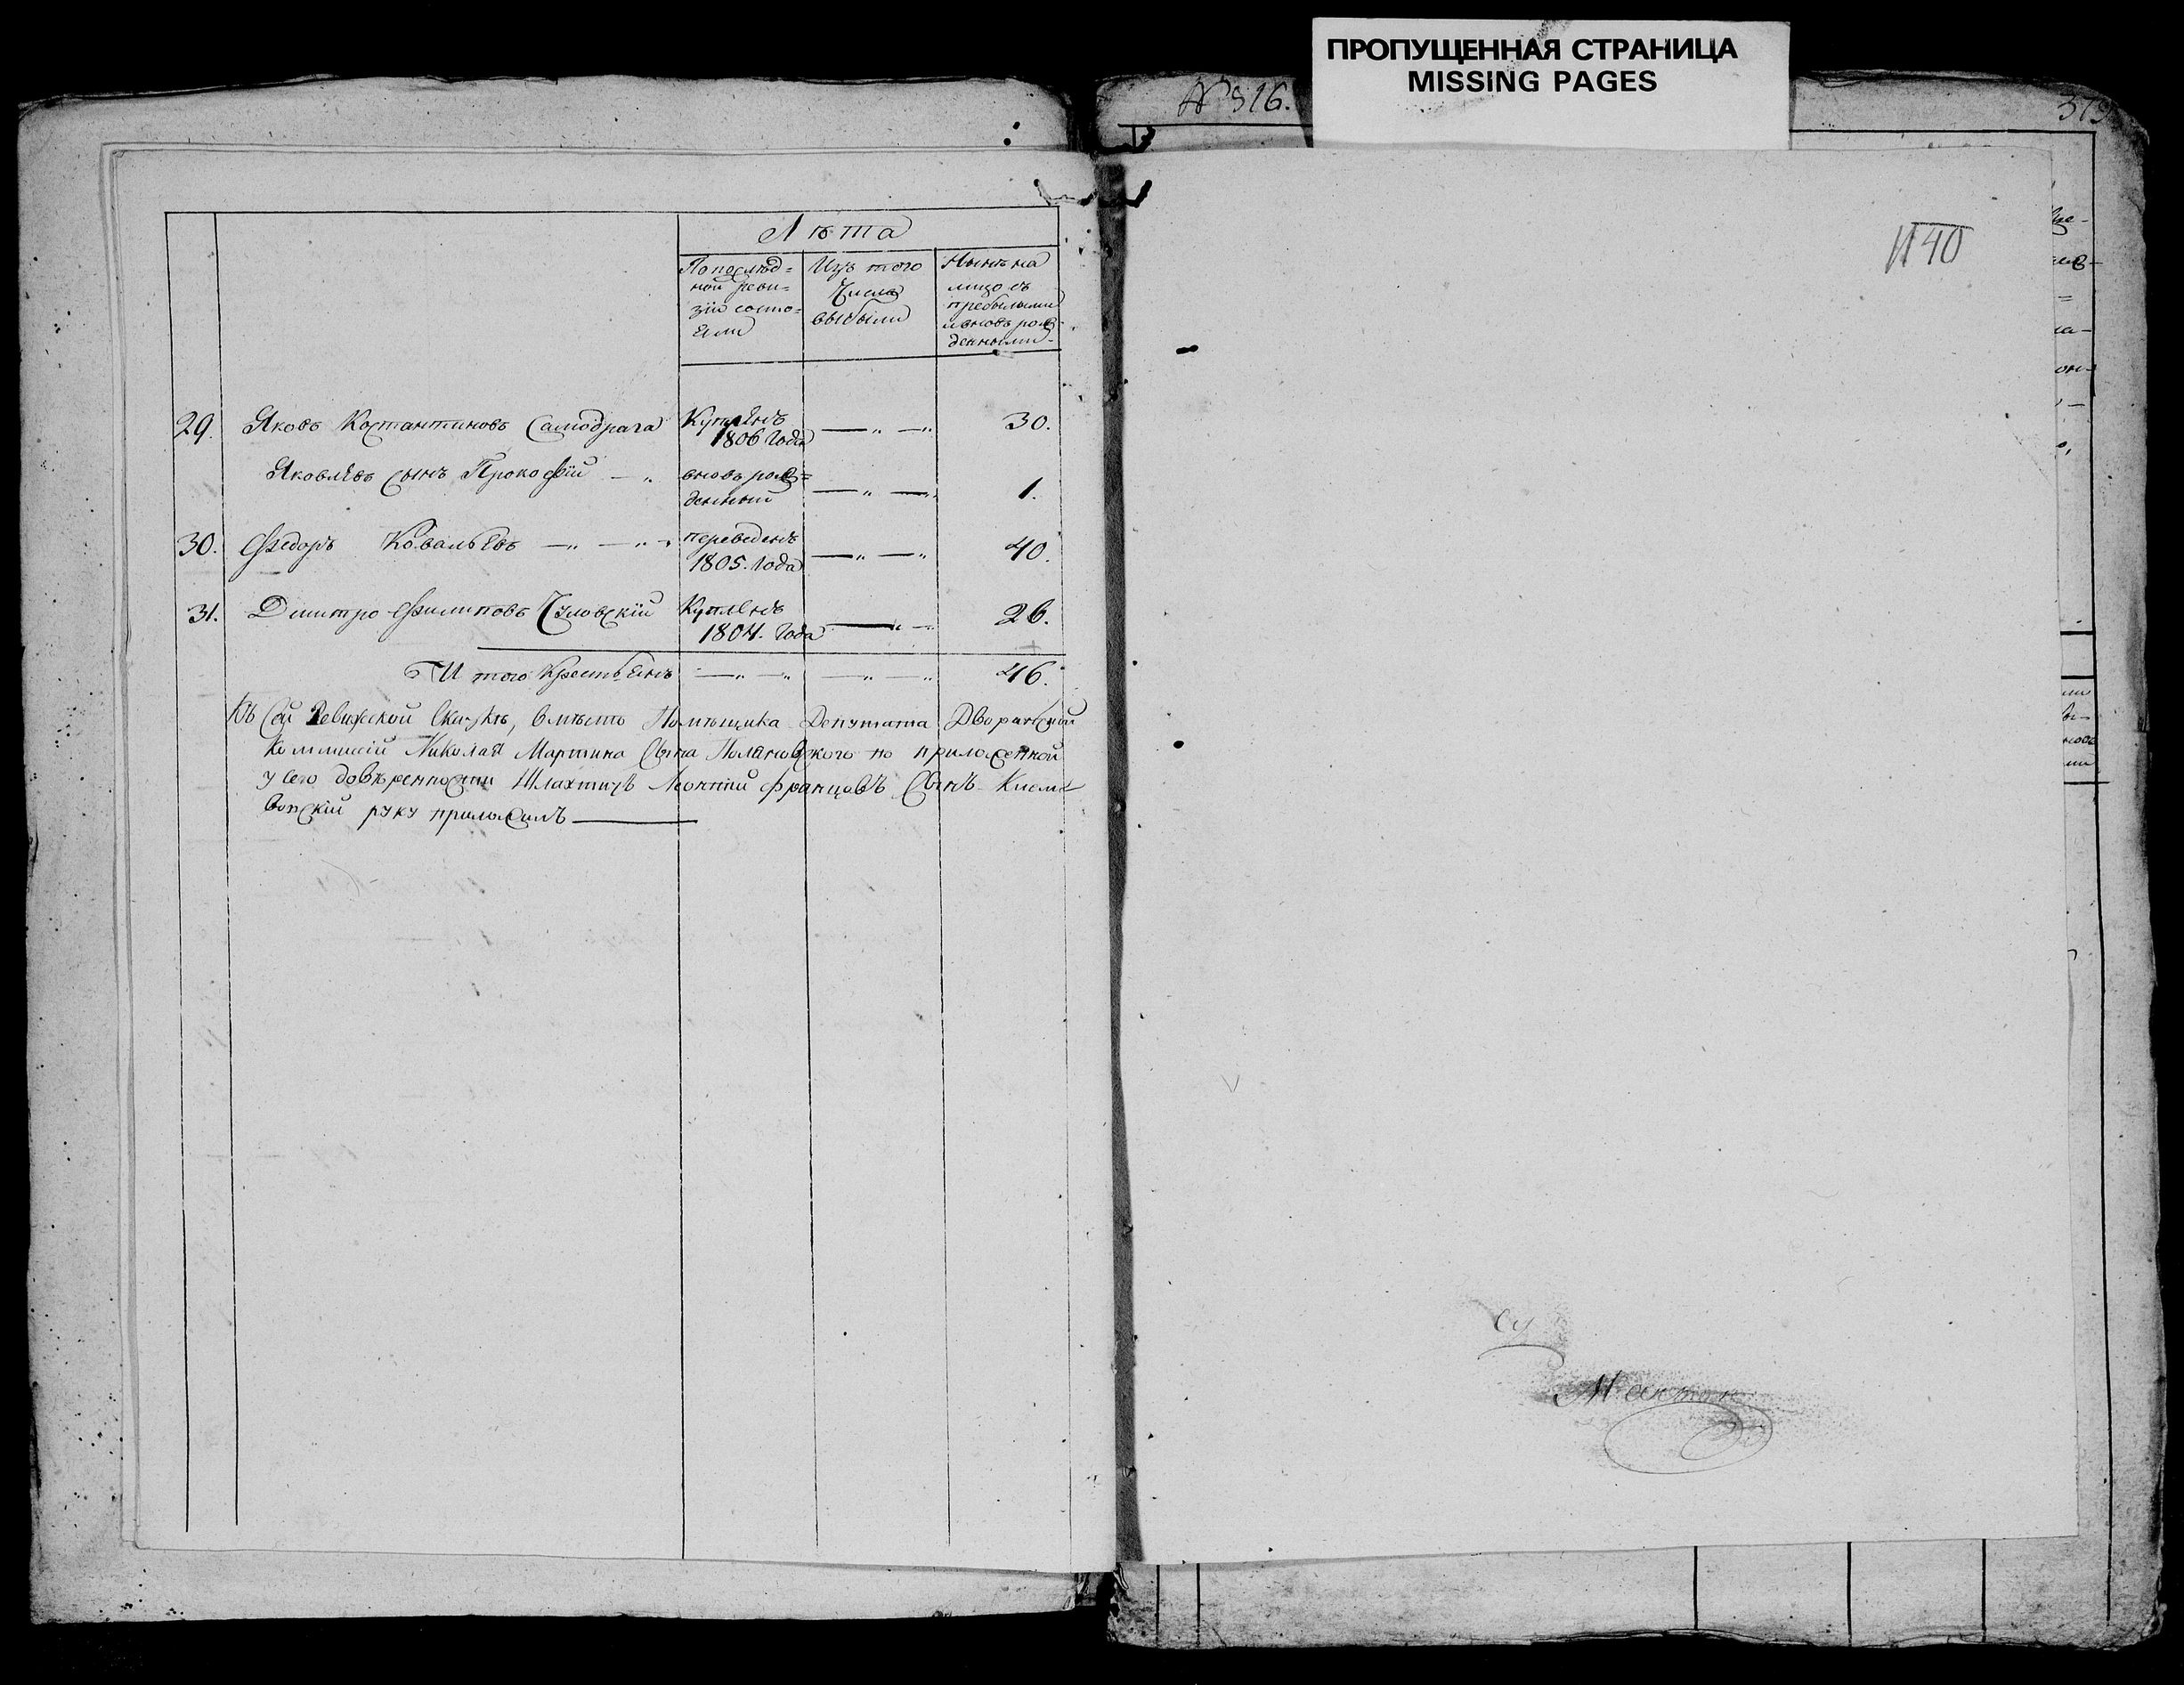 ПРОПУЩЕННАЯ СТРАНИЦА
MISSING PAGES
№ 316.
319
Лѣта
По послѣд=
ней реви=
зіи состо=
яли
Изъ того
Числа
выбыли
Нынѣ на
лицо съ
прибылыми
и вновь рож=
денными
29. Яковъ Костантиновъ Самодрага Купленъ 1806 Года — „ — „ 30.
Яковлевъ сынъ Прокофій — „ вновь рож=
денный — „ — „ 1.
30. Федоръ Ковальовъ — „ — „ переведенъ
1805. Года — „ — „ 40.
31. Дмитро Филиповъ Купленъ
1804. Года — „ — 26.
И того Крестьянъ — „ — „ — „ — „ 46.
Къ Сей Ревижской Сказкѣ, вмѣсто Помѣщика Депутата Дворянской
Коммисіи Николая Мартина Сына Поляновского по приложенной
у сего довѣренности Шляхтичъ Леонтій Францовъ Сынъ
руку приложилъ
1140